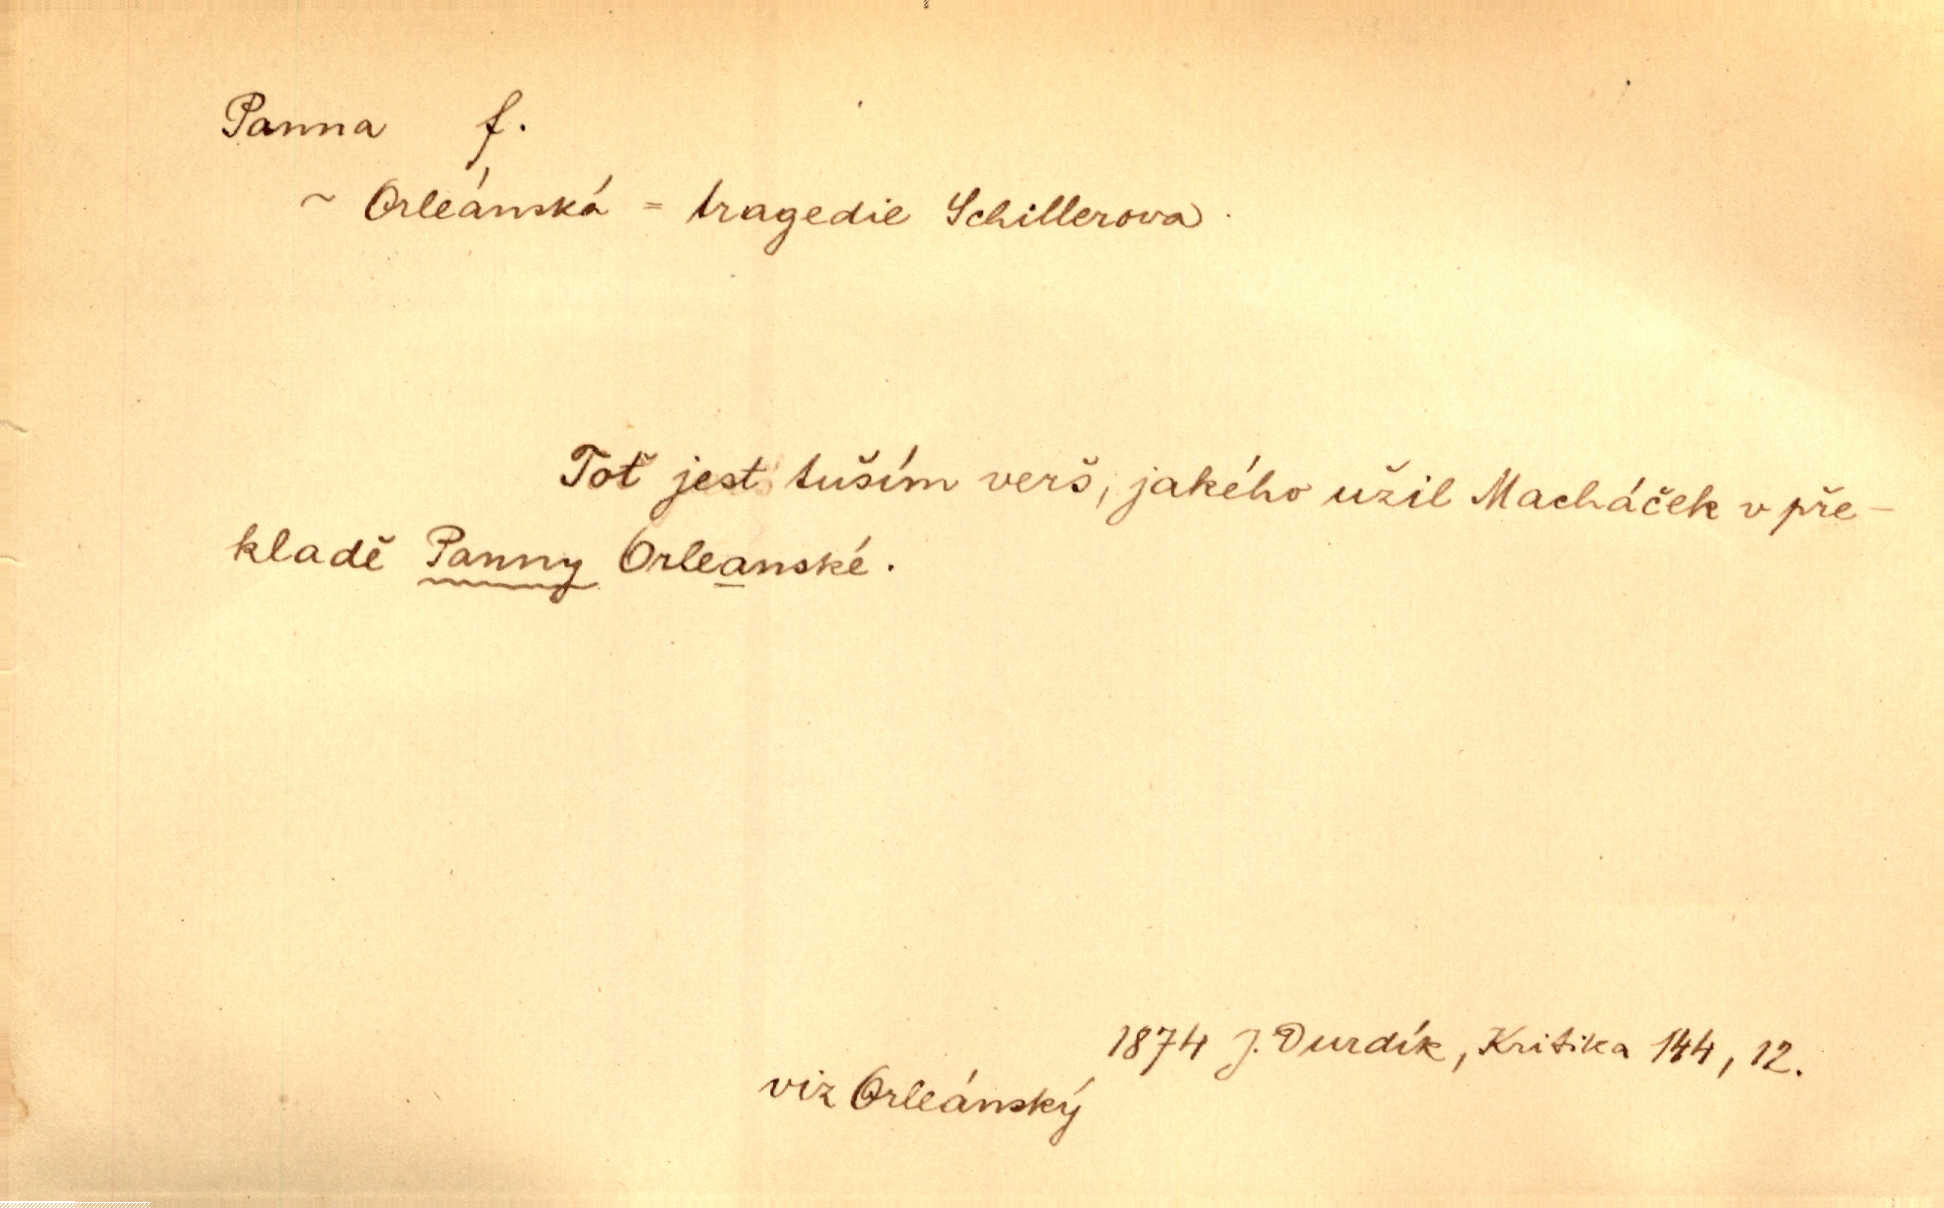 Panna f.
~ Orleánská = tragedie Schillerova.
Toť jest tuším verš, jakého užil Macháček v pře-
kladě Panny Orleanské.
1874 J. Durdík, Kritika 144, 12.
viz Orleánský